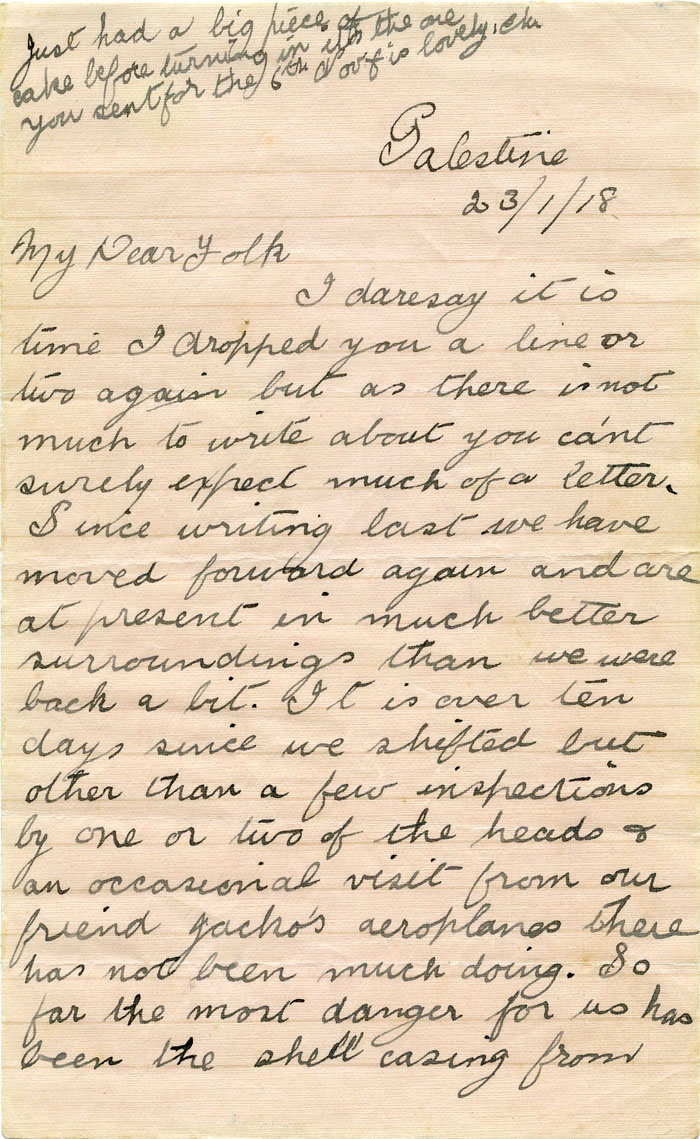 Just had a big piece of
cake before turning in its the one
you sent for the 6th Nov & is lovely,
Palestine
23/1/18
My Dear Folk
I daresay it is
time I dropped you a line or
two again but as there is not
much to write about you can't
surely expect much of a letter.
Since writing last we have
moved forward again and are
at present in much better
surroundings than we were
back a bit. It is over ten
days since we shifted but
other than a few inspections
by one or two of the heads &
an occasional visit from our
friend Jacko's aeroplanes there
has not been much doing. So
far the most danger for us has
been the shell casing from